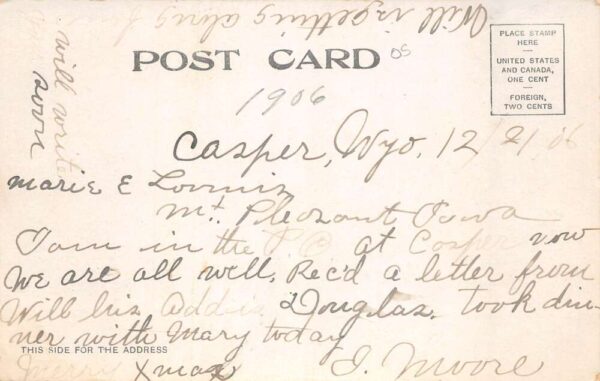 Will is getting along
will write
soon
POST CARD
PLACE STAMP
HERE
UNITED STATES
AND CANADA,
ONE CENT
FOREIGN,
TWO CENTS
1906
Casper, Wyo, 12/21 06
Marie E Loomis
Mt. Pleasant Iowa
I am in the P.O at Casper now
We are all well, Rec'd a letter from
Will his Addis Douglas. took din-
ner with Mary today
THIS SIDE FOR THE ADDRESS
Merry Xmas
J. Moore